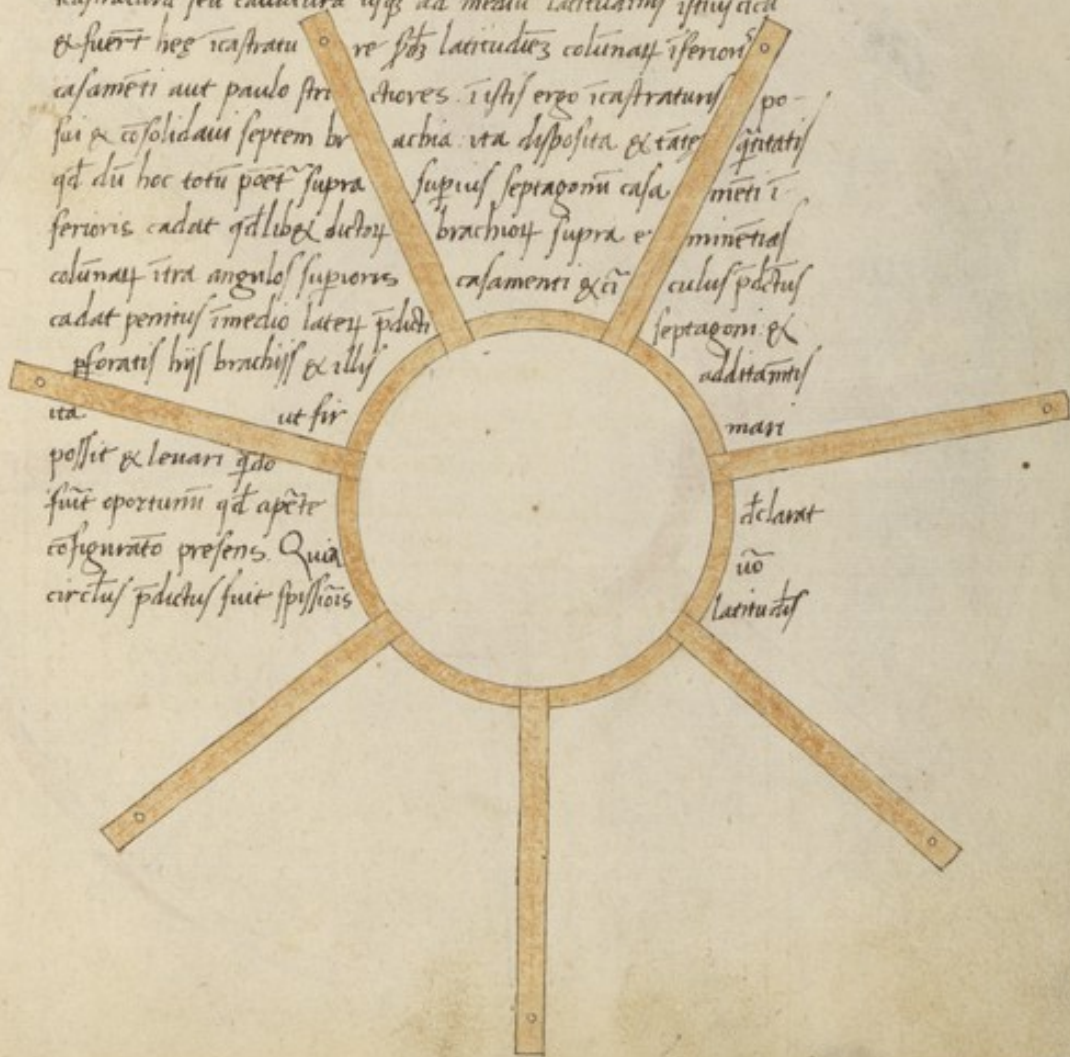 ad mediu latitudinis istius circu
& fuerīt heę icastratu re scdȝ latitudīeȝ colūnaꝝ īferioris
casamēti aut paulo stri ctiores. ī istis ergo icastraturis po-
sui & cōsolidavi septem br achia ita disposita & tātę q̄ntitatis
qd̄ dū hoc totū poet᷑ supra supius septagonū casa mēti ī-
ferioris cadat qd̄lib& dictoꝝ brachioꝝ supra e minētias
colūnaꝝ ītra angulos supioris casamenti & ci culus p̄dc̄tus
cadat penitus īmedio lateꝝ p̄dicti septagoni. &
ꝑforatis hijs brachijs & illis additam̄tis
ita ut fir mari
possit & levari qn̄do
fuīt oportunū qd̄ apc̄te dc̄larat
cōfigurat̄o presens. Quia ūo
circlus p̄dictus fuit spissiōis latitud̄is